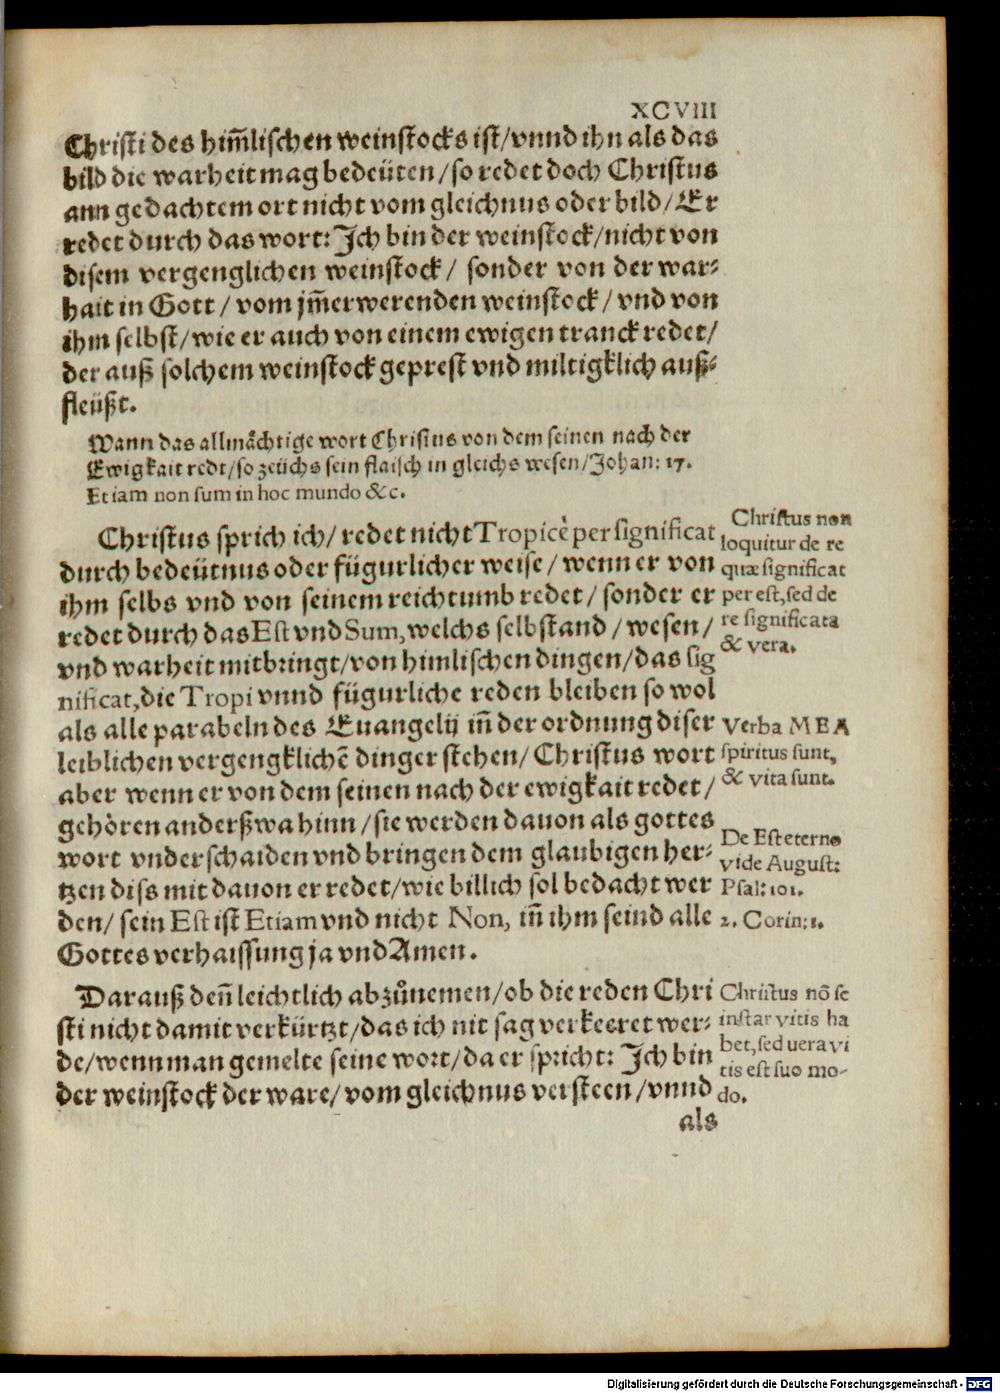 XCVIII
Christi des him̃lischen weinstocks ist/vnnd ihn als das
bild die warheit mag bedeüten/so redet doch Christus
ann gedachtem ort nicht vom gleichnus oder bild/Er
redet durch das wort: Ich bin der weinstock/nicht von
disem vergenglichen weinstock/ sonder von der war⸗
hait in Gott/vom jm̃erwerenden weinstock/vnd von
ihm selbst/wie er auch von einem ewigen tranck redet/
der auß solchem weinstock geprest vnd miltigklich auß⸗
fleüßt.
Wann das allmächtige wort Christus von dem seinen nach der
Ewigkait redt/so zeüchs sein flaisch in gleichs wesen/Johan: 17.
Etiam non sum in hoc mundo &c.
Christus sprich ich/redet nicht Tropicè per significat
durch bedeütnus oder fügurlicher weise/wenn er von
ihm selbs vnd von seinem reichtumb redet/sonder er
redet durch das Est vnd Sum, welchs selbstand/wesen/
vnd warheit mitbringt/von himlischen dingen/das sig
nificat, die Tropi vnnd fügurliche reden bleiben so wol
als alle parabeln des Euangelij iñ der ordnung diser
leiblichen vergengklichẽ dinger stehen/Christus wort
aber wenn er von dem seinen nach der ewigkait redet/
gehören anderßwa hinn/sie werden dauon als gottes
wort vnderschaiden vnd bringen dem glaubigen her⸗
tzen diss mit dauon er redet/wie billich sol bedacht wer
den/sein Est ist Etiam vnd nicht Non, iñ ihm seind alle
Gottes verhaissung ja vnd Amen.
Darauß deñ leichtlich abzůnemen/ob die reden Chri
sti nicht damit verkürtzt/das ich nit sag verkeeret wer⸗
de/wenn man gemelte seine wort/da er spricht: Ich bin
der weinstock der ware/vom gleichnus versteen/vnnd
als
Christus non
loquitur de re
quæ significat
per est, sed de
re significata
& vera.
Verba MEA
spiritus sunt,
& vita sunt.
De Est eterno
vide August:
Psal: 101.
2. Corin: 1.
Christus nõ se
instar vitis ha
bet, sed uera vi
tis est suo mo-
do.
Digitalisierung gefördert durch die Deutsche Forschungsgemeinschaft - DFG